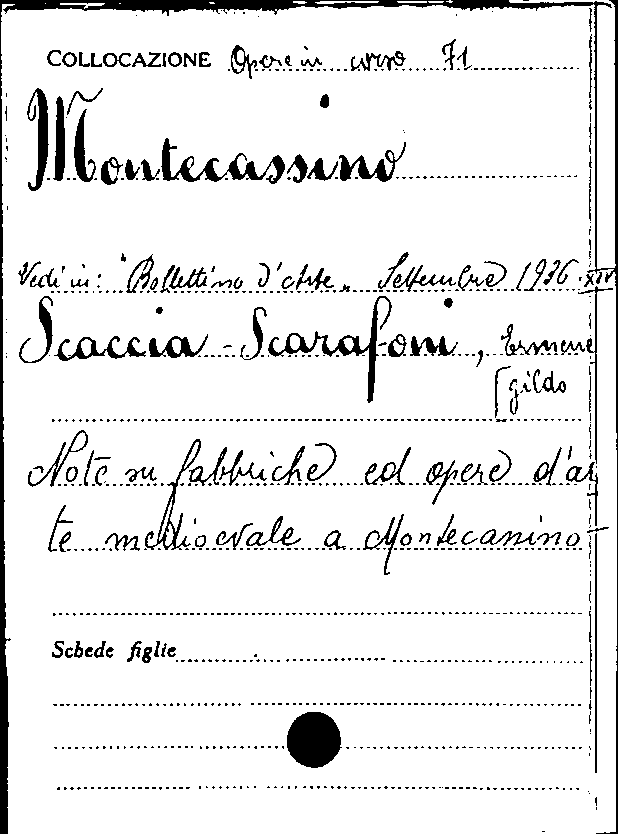 COLLOCAZIONE Opere in corso 71
Montecassino
Vedi in: "Bollettino d'Arte„ Settembre 1936-XIV
Scaccia-Scarafoni, Ermene
[gildo
Note su fabbriche ed opere d'ar
te medioevale a Montecassino
Schede figlie